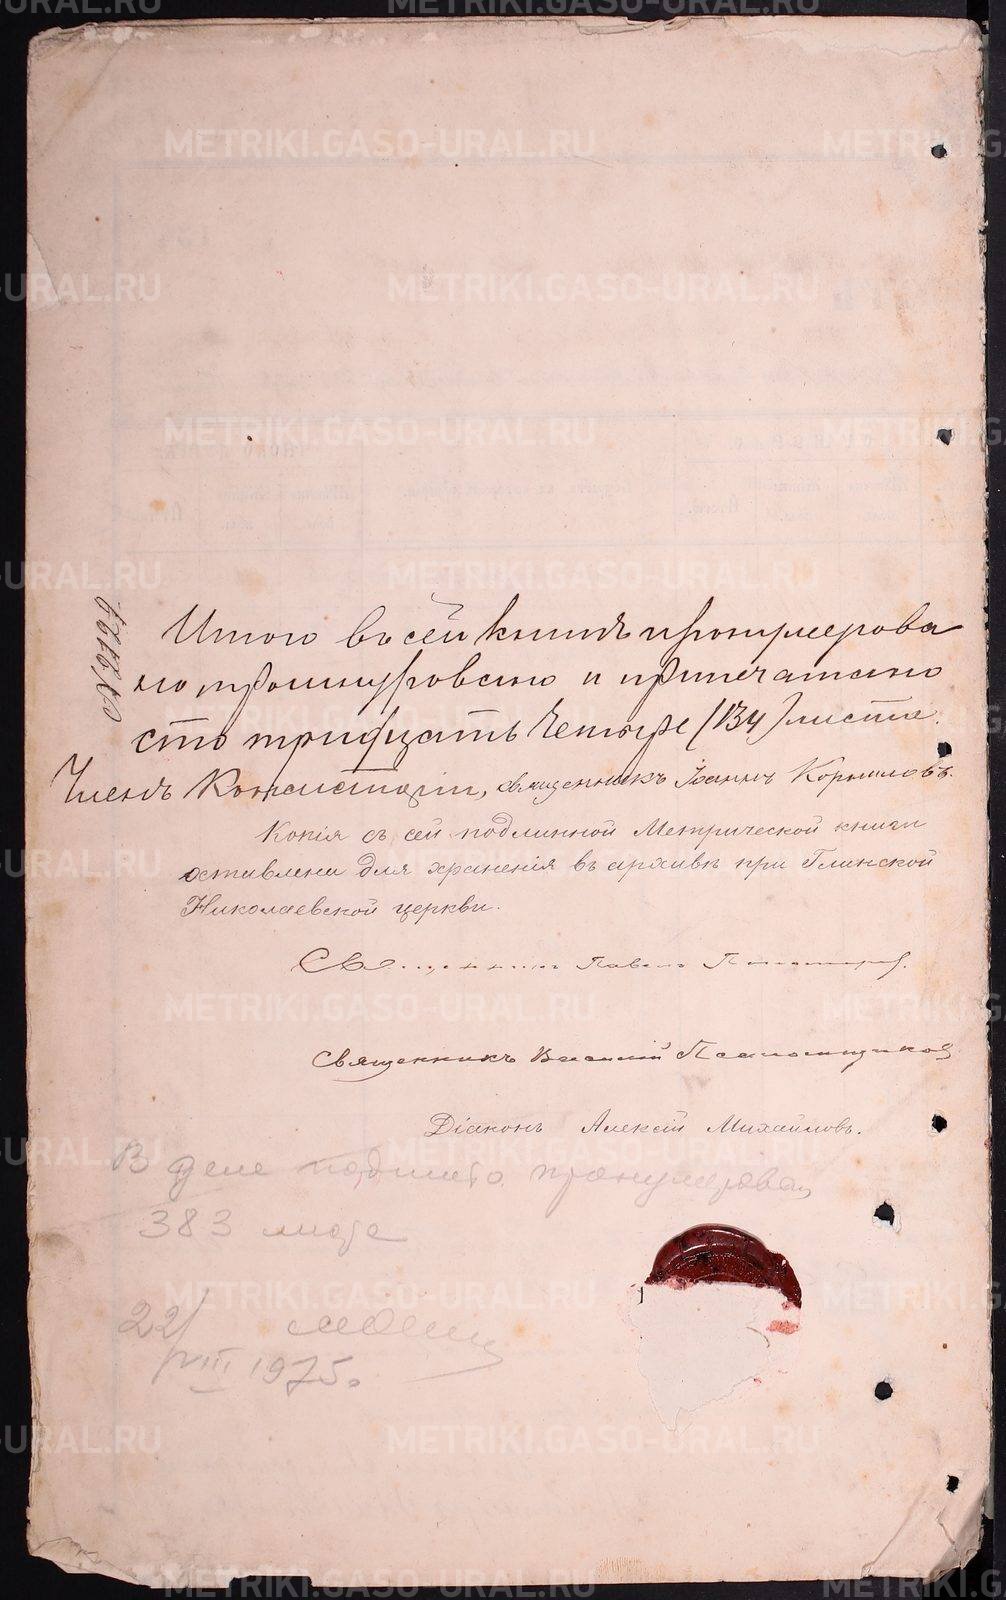 Итого въ сей книгѣ пронумерова
но прошнуровано и припечатано
сто тридцать четыре (134) листа.
Членъ Консисторіи, священникъ Іоаннъ Корниловъ.
Копія съ сей подлинной Метрической книги
оставлена для храненія въ архивѣ при Глинской
Николаевской церкви.
Священникъ Павелъ
Священникъ Василій
Діаконъ Алексій Михайловъ.
В деле подшито пронумерован
383 листа
22/VIII 1975г.
METRIKI.GASO-URAL.RU